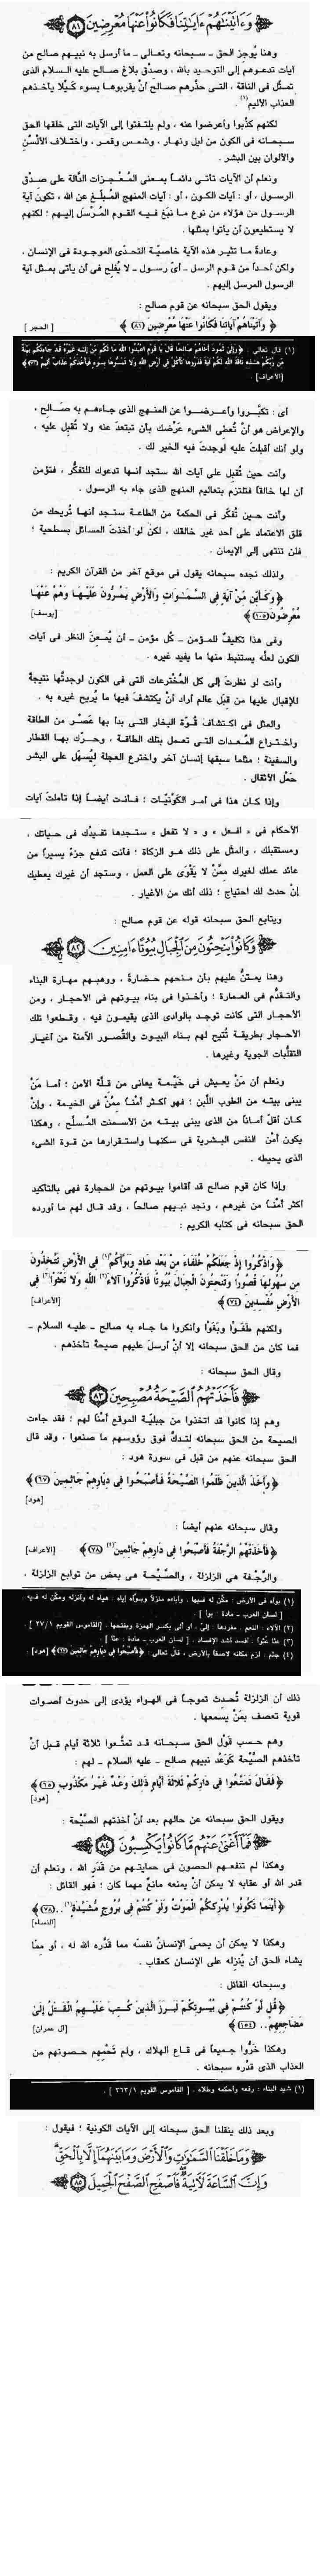 ﴿ وَءَاتَيْنَٰهُمْ ءَايَٰتِنَا فَكَانُوا۟ عَنْهَا مُعْرِضِينَ ٨١ ﴾
وهنا يُوجِز الحق ـ سبحانه وتعالى ـ ما أرسل به نبيهم صالح من
آيات تدعوهم إلى التوحيد بالله ، وصدَّق بلاغ صالح عليه السلام الذى
تمثَّل فى الناقة ، التى حذَّرهم صالح أنْ يقربوها بسوء كَيْلا يأخذهم
العذاب الأليم (١) .
لكنهم كذَّبوا وأعرضوا عنه ، ولم يلتفتوا إلى الآيات التى خلقها الحق
سبحانه فى الكون من ليل ونهار ، وشمس وقمر ، واختلاف الألْسُن
والألوان بين البشر .
ونعلم أن الآيات تأتى دائماً بمعنى المُعْجزات الدَّالة على صدْق
الرسول ، أو : آيات الكون ، أو : آيات المنهج المُبلّغ عن الله ، تكون آية
الرسول من هؤلاء من نوع ما نبغ فيه القوم المُرْسَل إليهم ؛ لكنهم
لا يستطيعون أن يأتوا بمثلها .
وعادةً ما تثير هذه الآية خاصيّة التحدّى الموجودة فى الإنسان ،
ولكن أحداً من قوم الرسل ـ أىّ رسول ـ لا يُفلِح فى أن يأتى بمثل آية
الرسول المرسل إليهم .
ويقول الحق سبحانه عن قوم صالح :
﴿ وَآتَيْنَاهُمْ آيَاتِنَا فَكَانُوا عَنْهَا مُعْرِضِينَ (٨١) ﴾ [ الحجر ]
(١) قال تعالى : ﴿ وَإِلَىٰ ثَمُودَ أَخَاهُمْ صَالِحًا قَالَ يَا قَوْمِ اعْبُدُوا اللَّهَ مَا لَكُم مِّنْ إِلَٰهٍ غَيْرُهُ قَدْ جَاءَتْكُم بَيِّنَةٌ
مِّن رَّبِّكُمْ هَٰذِهِ نَاقَةُ اللَّهِ لَكُمْ آيَةً فَذَرُوهَا تَأْكُلْ فِي أَرْضِ اللَّهِ وَلَا تَمَسُّوهَا بِسُوءٍ فَيَأْخُذَكُمْ عَذَابٌ أَلِيمٌ (٧٣) ﴾
[الأعراف] .
أى : تكبَّروا وأعرضوا عن المنهج الذى جاءهم به صَالح ،
والإعراض هو أنْ تُعطى الشىء عَرْضك بأن تبتعدَ عنه ولا تُقبِل عليه ،
ولو أنك أقبلتَ عليه لَوجدتَ فيه الخير لك .
وأنت حين تُقبِل على آيات الله ستجد أنها تدعوك للتفكُّر ، فتؤمن
أن لها خالقاً فتلتزم بتعاليم المنهج الذى جاء به الرسول .
وأنت حين تُفكِّر فى الحكمة من الطاعة ستجد أنها تُريحك من
قلق الاعتماد على أحد غير خالقك ، لكن لو أخذتَ المسائل بسطحية ؛
فلن تنتهى إلى الإيمان .
ولذلك نجده سبحانه يقول فى موقع آخر من القرآن الكريم :
﴿ وَكَأَيِّن مِّنْ آيَةٍ فِي السَّمَٰوَاتِ وَالْأَرْضِ يَمُرُّونَ عَلَيْهَا وَهُمْ عَنْهَا
مُعْرِضُونَ (١٠٥) ﴾ [يوسف]
وفى هذا تكليفٌ للمؤمن ـ كُل مؤمن ـ أن يُمعِنَ النظر فى آيات
الكون لعلَّه يستنبط منها ما يفيد غيره .
وأنت لو نظرتَ إلى كل المُخْترعات التى فى الكون لوجدتَّها نتيجةً
للإقبال عليها من قِبَل عالم أراد أنْ يكتشفَ فيها ما يُريح غيره به .
والمثل فى اكتشاف قُوَّة البخار التى بدأ بها عَصْر من الطاقة
واختراع المُعدات التى تعمل بتلك الطاقة ، وحرّك بها القطار
والسفينة ؛ مثلما سبقها إنسانٌ آخر واخترع العجلة ليُسهِّل على البشر
حَمْل الأثقال .
وإذا كان هذا فى أمر الكَوْنيّات ؛ فأنت أيضاً إذا تأملتَ آيات
الأحكام فى « افعل » و « لا تفعل » ستجدها تفيدُك فى حياتك ،
ومستقبلك ، والمثل على ذلك هو الزكاة ؛ فأنت تدفع جزءً يسيراً من
عائد عملك لغيرك ممَّنْ لا يَقْوَى على العمل ، وستجد أن غيرك يعطيك
إنْ حدث لك احتياج ؛ ذلك أنك من الأغيار .
ويتابع الحق سبحانه قوله عن قوم صالح :
﴿ وَكَانُوا۟ يَنْحِتُونَ مِنَ ٱلْجِبَالِ بُيُوتًا ءَامِنِينَ ٨٢ ﴾
وهنا يمتنُّ عليهم بأن منحهم حضارةً ، ووهبهم مهارة البناء
والتقدُّم فى العمارة ؛ وأخذوا فى بناء بيوتهم فى الأحجار ، ومن
الأحجار التى كانت توجد بالوادى الذى يقيمون فيه ، وقطعوا تلك
الأحجار بطريقة تُتيح لهم بناء البيوت والقُصور الآمنة من أغيار
التقلُّبات الجوية وغيرها .
ونعلم أن مَنْ يعيش فى خَيْمة يعانى من قلَّة الأمن ؛ أما مَنْ
يبنى بيته من الطوب اللَّبن ؛ فهو أكثر أمْناً ممَّنْ فى الخيمة ، وإنْ
كان أقلّ أماناً من الذى يبنى بيته من الأسمنت المُسلّح ، وهكذا
يكون أمْن النفس البشرية فى سكنها واستقرارها من قوة الشىء
الذى يحيطه .
وإذا كان قوم صالح قد أقاموا بيوتهم من الحجارة فهى بالتأكيد
أكثر أمْناً من غيرهم ، ونجد نبيهم صالحاً ، وقد قال لهم ما أورده
الحق سبحانه فى كتابه الكريم :
﴿ وَاذْكُرُوا إِذْ جَعَلَكُمْ خُلَفَاءَ مِنْ بَعْدِ عَادٍ وَبَوَّأَكُمْ (١) فِي الْأَرْضِ تَتَّخِذُونَ
مِن سُهُولِهَا قُصُورًا وَتَنْحِتُونَ الْجِبَالَ بُيُوتًا فَاذْكُرُوا آلَاءَ (٢) اللَّهِ وَلَا تَعْثَوْا (٣) فِي
الْأَرْضِ مُفْسِدِينَ (٧٤) ﴾ [الأعراف]
ولكنهم طَغَوْا وبَغَوْا وأنكروا ما جاء به صالح ـ عليه السلام ـ
فما كان من الحق سبحانه إلا أنْ أرسلَ عليهم صيحةً تأخذهم .
وقال الحق سبحانه :
﴿ فَأَخَذَتْهُمُ ٱلصَّيْحَةُ مُصْبِحِينَ ٨٣ ﴾
وهم إذا كانوا قد اتخذوا من جبليّة الموقع أمْناً لهم ؛ فقد جاءت
الصيحة من الحق سبحانه لتدكَّ فوق رؤوسهم ما صنعوا ، وقد قال
الحق سبحانه عنهم من قبل فى سورة هود :
﴿ وَأَخَذَ الَّذِينَ ظَلَمُوا الصَّيْحَةُ فَأَصْبَحُوا فِي دِيَارِهِمْ جَاثِمِينَ (٦٧) ﴾
[هود]
وقال سبحانه عنهم أيضاً :
﴿ فَأَخَذَتْهُمُ الرَّجْفَةُ فَأَصْبَحُوا فِي دَارِهِمْ جَاثِمِينَ (٤) (٧٨) ﴾ [الأعراف]
والرَّجْفة هى الزلزلة ، والصَّيْحة هى بعض من توابع الزلزلة ،
(١) بوأه فى الأرض : مكّن له فيها . وأباءه منزلاً وبوأه إياه : هيأه له وأنزله ومكّن له فيه .
[ لسان العرب ـ مادة : بوأ ] .
(٢) الآلاء : النعم . مفردها : إلىً ، أو ألى بكسر الهمزة وبفتحها . [القاموس القويم ٢٧/١ ] .
(٣) عثا عثُواً : أفسد أشد الإفساد . [ لسان العرب ـ مادة : عثا ] .
(٤) جثم : لزم مكانه لاصقاً بالأرض ، قال تعالى : ﴿ فَأَصْبَحُوا فِي دِيَارِهِمْ جَاثِمِينَ (٦٧) ﴾ [هود] .
ذلك أن الزلزلة تُحدِث تموجاً فى الهواء يؤدى إلى حدوث أصوات
قوية تعصف بمَنْ يسمعها .
وهم حسب قَوْل الحق سبحانه قد تمتَّعوا ثلاثة أيام قبل أنْ
تأخذهم الصيَّحة كَوعْد نبيهم صالح ـ عليه السلام ـ لهم :
﴿ فَقَالَ تَمَتَّعُوا فِي دَارِكُمْ ثَلَاثَةَ أَيَّامٍ ذَٰلِكَ وَعْدٌ غَيْرُ مَكْذُوبٍ (٦٥) ﴾
[هود]
ويقول الحق سبحانه عن حالهم بعد أنْ أخذتهم الصَّيْحة :
﴿ فَمَآ أَغْنَىٰ عَنْهُم مَّا كَانُوا۟ يَكْسِبُونَ ٨٤ ﴾
وهكذا لم تنفعهم الحصون فى حمايتهم من قَدَر الله ، ونعلم أن
قدر الله أو عقابه لا يمكن أنْ يمنعه مانعٌ مهما كان ؛ فهو القائل :
﴿ أَيْنَمَا تَكُونُوا يُدْرِككُّمُ الْمَوْتُ وَلَوْ كُنتُمْ فِي بُرُوجٍ مُّشَيَّدَةٍ (١) .. (٧٨) ﴾
[النساء]
وهكذا لا يمكن أن يحمىَ الإنسانُ نفسَه مما قدَّره الله له ، أو ممَّا
يشاء الحق أن يُنزِله على الإنسان كعقاب .
وسبحانه القائل :
﴿ قُل لَّوْ كُنتُمْ فِي بُيُوتِكُمْ لَبَرَزَ الَّذِينَ كُتِبَ عَلَيْهِمُ الْقَتْلُ إِلَىٰ
مَضَاجِعِهِمْ .. (١٥٤) ﴾ [آل عمران]
وهكذا خَرُّوا جميعاً فى قاع الهلاك ، ولم تَحْمِهم حصونهم من
العذاب الذى قدَّره سبحانه .
(١) شيد البناء : رفعه وأحكمه وطلاه . [ القاموس القويم ٣٦٣/١ ] .
وبعد ذلك ينقلنا الحق سبحانه إلى الآيات الكونية ؛ فيقول :
﴿ وَمَا خَلَقْنَا ٱلسَّمَٰوَٰتِ وَٱلْأَرْضَ وَمَا بَيْنَهُمَآ إِلَّا بِٱلْحَقِّ
وَإِنَّ ٱلسَّاعَةَ لَءَاتِيَةٌ فَٱصْفَحِ ٱلصَّفْحَ ٱلْجَمِيلَ ٨٥ ﴾